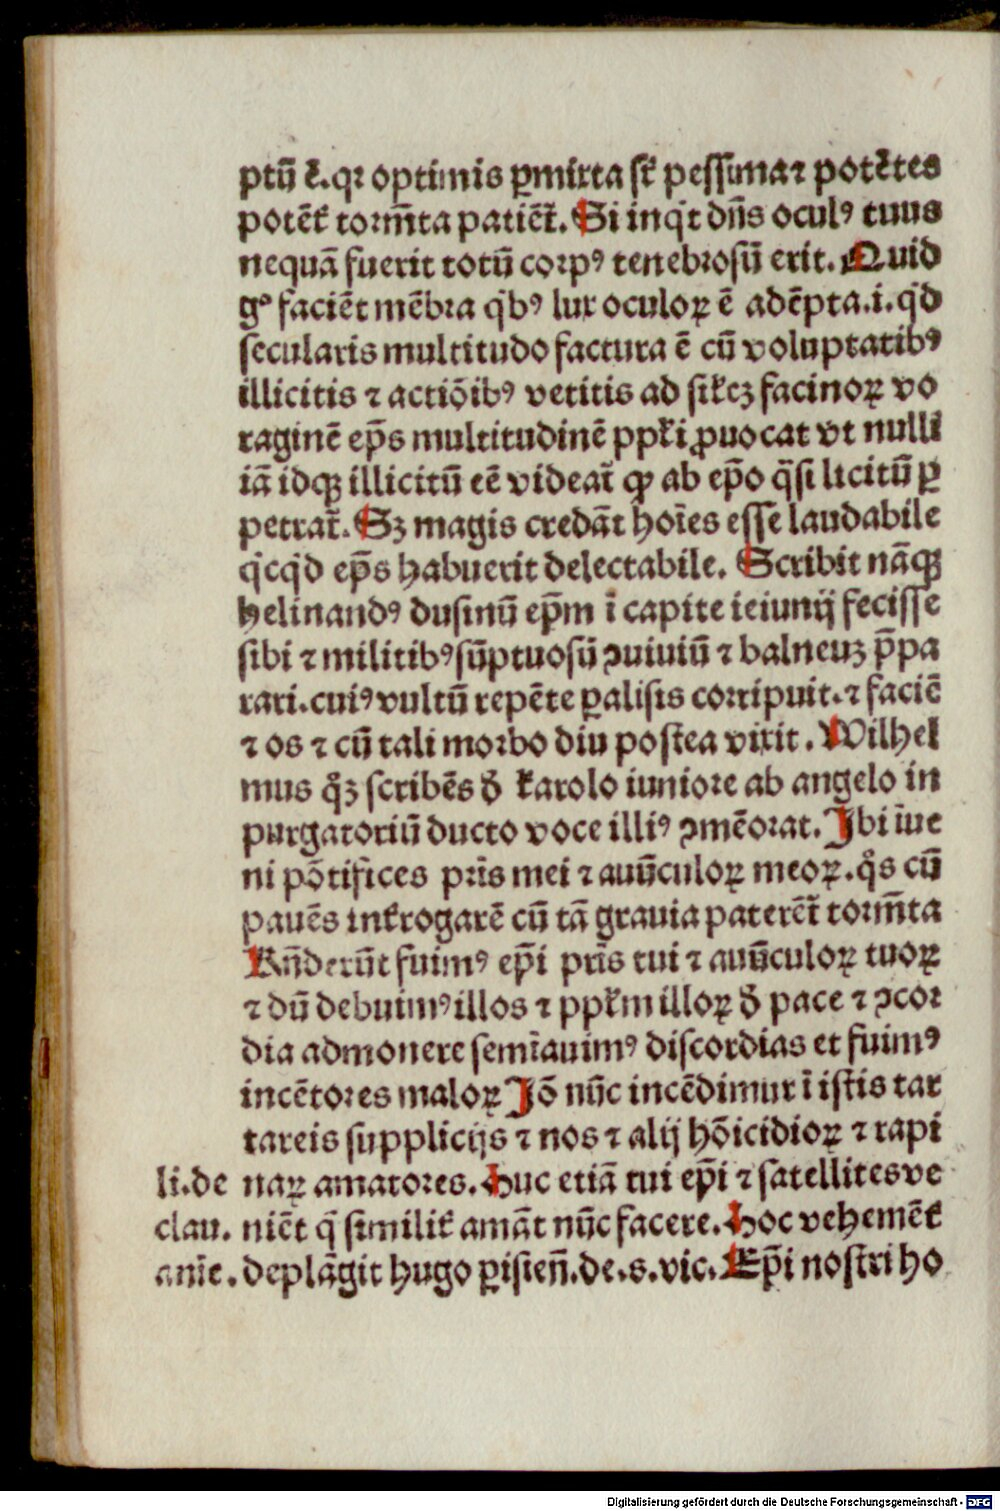 ptū ē.qꝛ optimis ꝑmixta ſt̄ peſſima ⁊ potētes
potēt̄ toꝛm̄ta patiēt̄. Si inqͥt dn̄s oculꝰ tuus
nequā fuerit totū coꝛpꝰ tenebꝛoſū erit. Quid
gͦ faciēt mēbꝛa qͥbꝰ lux oculoꝝ ē adēpta.i.qͥd
ſecularis multitudo factura ē cū voluptatibꝰ
illicitis ⁊ actiōibꝰ vetitis ad ſil̄cꝫ facinoꝝ vo
raginē ep̄s multitudinē ppl̄i ꝓuocat vt nulli
iā idqꝫ illicitū eē videat̄ ꝙ ab ep̄o q̄ſi licitū ꝑ
petrat̄. Sꝫ magis credāt hoīes eſſe laudabile
qͥcqͥd ep̄s habuerit delectabile. Scribit nāqꝫ
helinandꝰ duſinū ep̄m ī capite ieiunij feciſſe
ſibi ⁊ militibꝰ ſūptuoſū ꝯuiuiū ⁊ balneuꝫ p̄pa
rari.cuiꝰ vultū repēte ꝑaliſis coꝛripuit.⁊ faciē
⁊ os ⁊ cū tali moꝛbo diu poſtea vixit. Wilhel
mus qͦꝫ ſcribēs ꝺ̄ karolo iunioꝛe ab angelo in
purgatoꝛiū ducto voce illiꝰ ꝯmēoꝛat. Ibi īue
ni pōtifices pr̄is mei ⁊ auūculoꝝ meoꝝ.qͦs cū
pauēs int̄rogarē cū tā grauia paterēt̄ toꝛm̄ta
Rn̄derūt fuimꝰ ep̄i pr̄is tui ⁊ auūculoꝝ tuoꝝ
⁊ dū debuimꝰ illos ⁊ ppl̄m illoꝝ ꝺ̄ pace ⁊ ꝯcoꝛ
dia admonere ſemīauimꝰ diſcoꝛdias et fuimꝰ
incētoꝛes maloꝝ Iō nūc incēdimur ī iſtis tar
tareis ſupplicijs ⁊ nos ⁊ alij hōicidioꝝ ⁊ rapi
li.de naꝝ amatoꝛes. Huc etiā tui ep̄i ⁊ ſatellites ve
clau. niēt q̄ ſimilit̄ amāt nūc facere. Hoc vehemēt̄
anīe. deplāgit hugo ꝑiſien̄.de.s.vic. Ep̄i noſtri ho
Digitalisierung gefördert durch die Deutsche Forschungsgemeinschaft - DFG